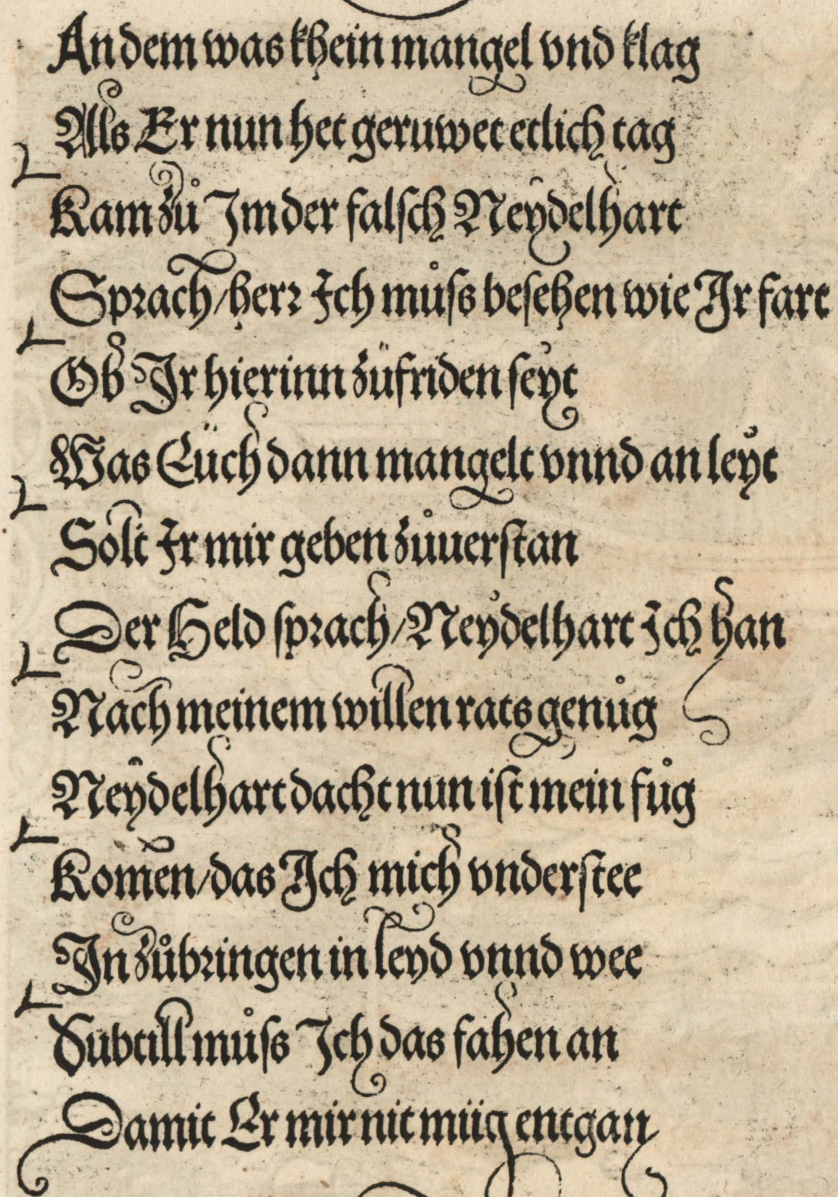 An dem was khein mangel vnd klag
Als Er nun het geruwet etlich tag
Kam zů Im der falsch Neydelhart
Sprach/herr Ich můſs beſehen wie Ir fart
Ob Ir hierinn zůfriden ſeyt
Was Eüch dann mangelt vnnd an leyt
Solt Ir mir geben zůuerſtan
Der Held ſprach/Neydelhart Ich han
Nach meinem willen rats genůg
Neydelhart dacht nun iſt mein fůg
Komen/das Ich mich vnderſtee
In zůbringen in leyd vnnd wee
Subtill můſs Ich das fahen an
Damit Er mir nit müg entgan